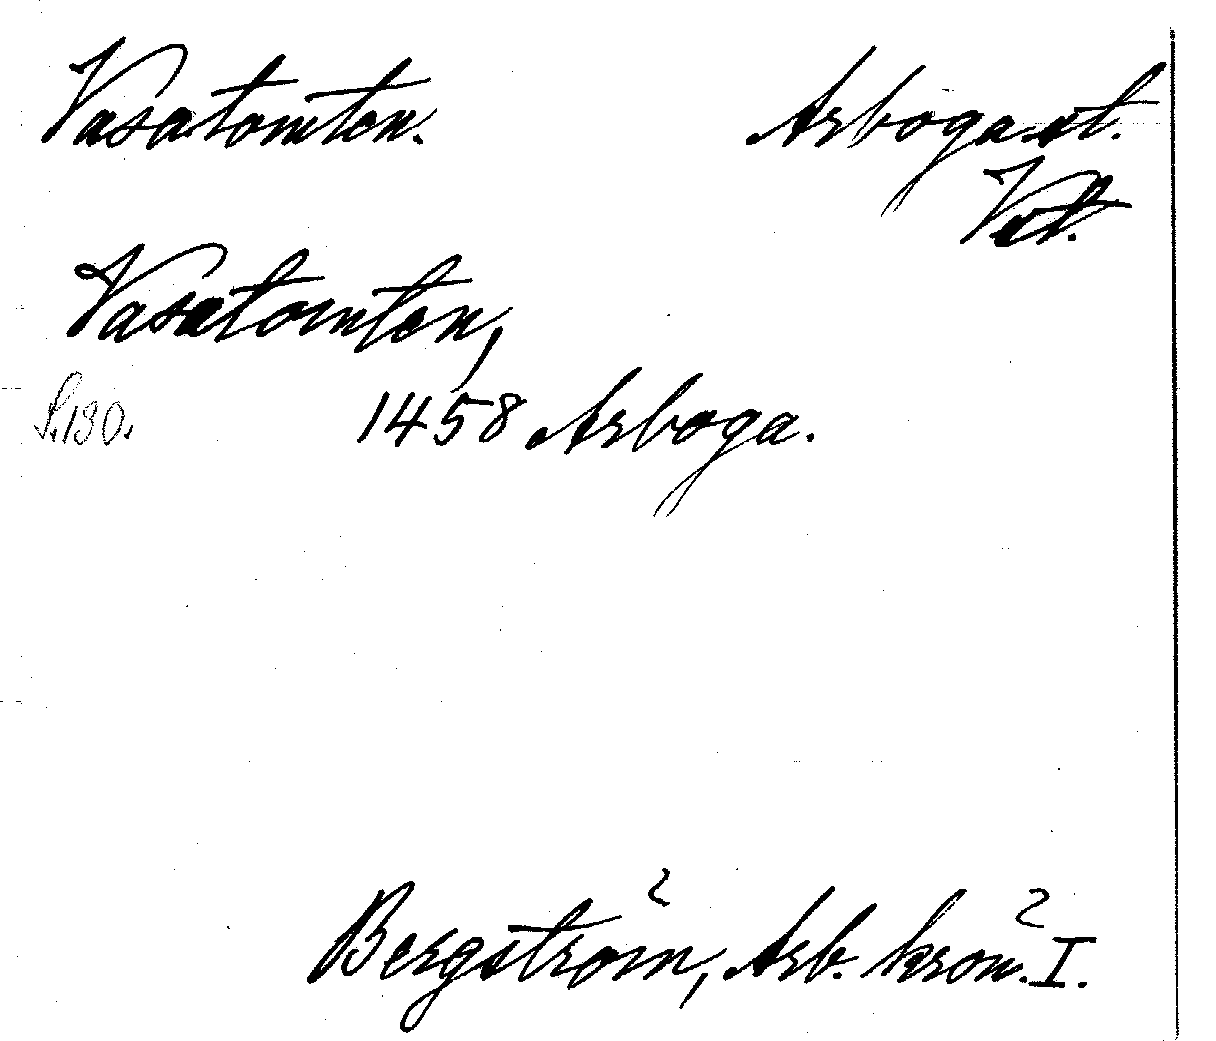 Vasatomten. Arboga st.
Vstl.
Vasatomten,
S. 130. 1458 Arboga.
Bergström, Arb. krön. I.